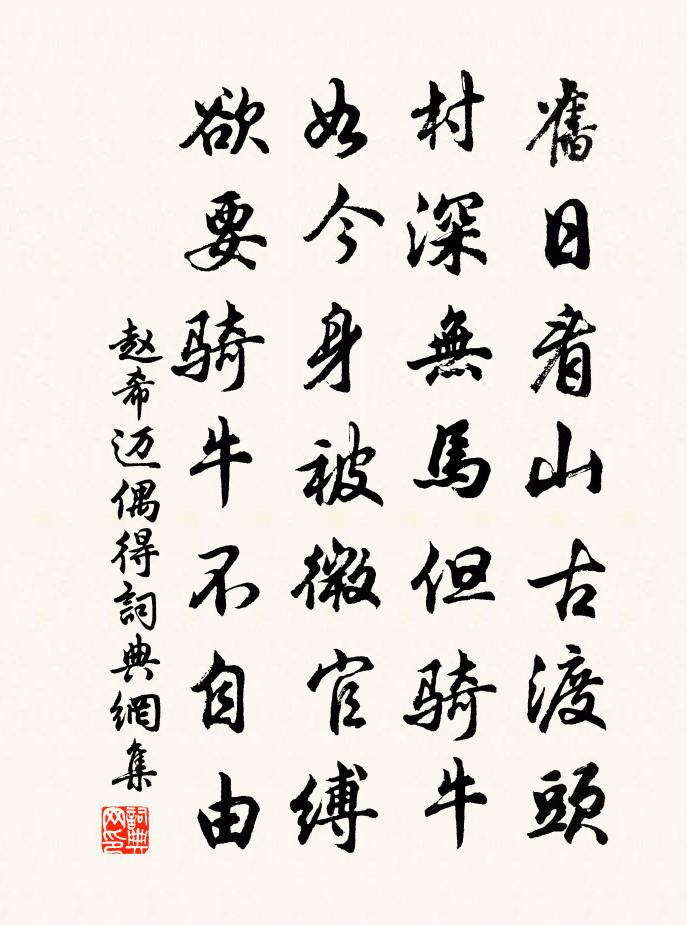 舊日看山古渡頭
村深無馬但騎牛
如今身被微官縛
欲要騎牛不自由
赵希迈偶得詞典網集
詞典
网印